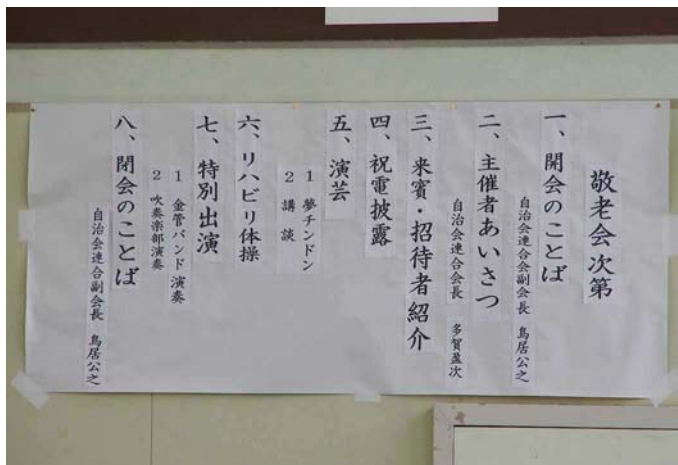 敬老会次第
一、開会のことば
自治会連合会副会長 鳥居公之
二、主催者あいさつ
自治会連合会長 多賀盈次
三、来賓・招待者紹介
四、祝電披露
五、演芸
1 夢チンドン
2 講談
六、リハビリ体操
七、特別出演
1 金管バンド演奏
2 吹奏楽部演奏
八、閉会のことば
自治会連合副会長 鳥居公之